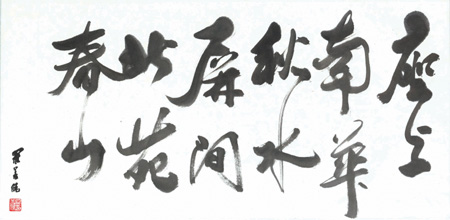 座上
南華
秋水
屏間
北苑
春山